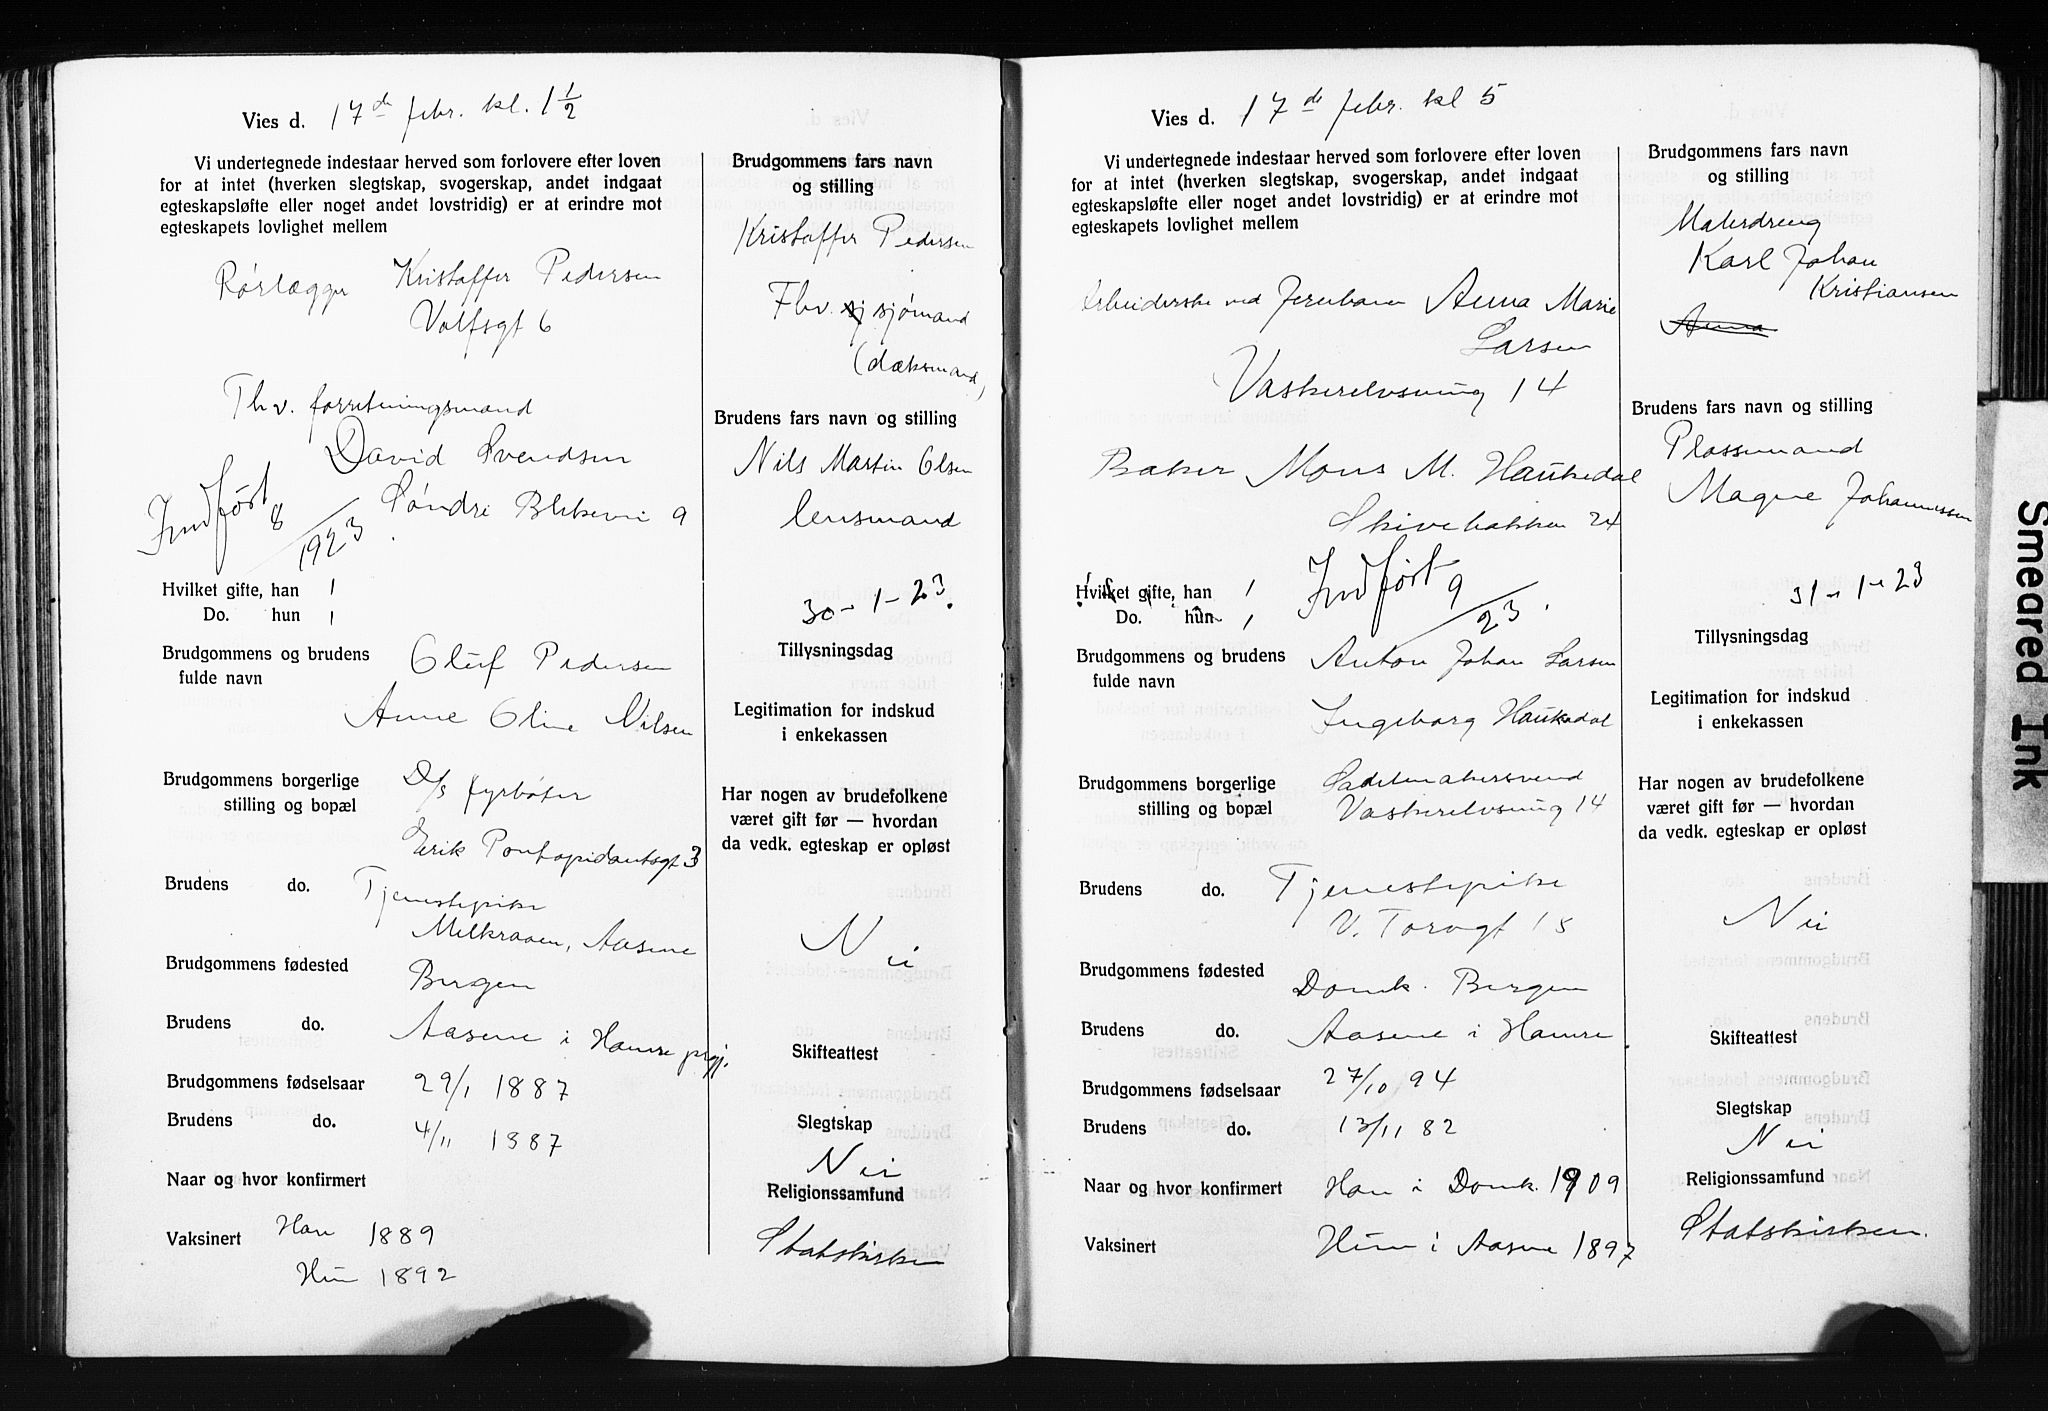 Vies d. 17de febr. kl. 1 1/2
Vi undertegnede indestaar herved som forlovere efter loven
for at intet (hverken slegtskap, svogerskap, andet indgaat
egteskapsløfte eller noget andet lovstridig) er at erindre mot
egteskapets lovlighet mellem
Rørlægger Kristoffer Pedersen
Volfsgt 6
Fhv. forretningsmand
David Svendsen
Søndre Blekevei 9
Indført 8/1923
Hvilket gifte, han 1
Do. hun 1
Brudgommens og brudens Oluf Pedersen
fulde navn
Anne Oline Nilsen
Brudgommens borgerlige D/s fyrbøter
stilling og bopæl
Erik Pontopidantsgt 3
Brudens do. Tjenestepike
Melkraaen, Aasene
Brudgommens fødested Bergen
Brudens do. Aasene i Hamre prgj.
Brudgommens fødselsaar 29/1 1887
Brudens do. 4/11 1887
Naar og hvor konfirmert
Vaksinert Han 1889
Hun 1892
Brudgommens fars navn
og stilling
Kristoffer Pedersen
Fhv. sj sjømand
(dæksmand)
Brudens fars navn og stilling
Nils Martin Olsen
lensmand
30-1-23.
Tillysningsdag
Legitimation for indskud
i enkekassen
Har nogen av brudefolkene
været gift før — hvordan
da vedk. egteskap er opløst
Nei
Skifteattest
Slegtskap
Nei
Religionssamfund
Statskirken
Vies d. 17de febr. kl 5
Vi undertegnede indestaar herved som forlovere efter loven
for at intet (hverken slegtskap, svogerskap, andet indgaat
egteskapsløfte eller noget andet lovstridig) er at erindre mot
egteskapets lovlighet mellem
Arbeiderske ved Jernbanen Anna Marie
Larsen
Vaskerelvsmug 14
Baker Mons M. Haukedal
Skivebakken 24
Indført 9/23.
Hvilket gifte, han 1
Do. hun 1
Brudgommens og brudens Anton Johan Larsen
fulde navn
Ingeborg Haukedal
Brudgommens borgerlige Sadelmakersvend
stilling og bopæl Vaskerelvsmug 14
Brudens do. Tjenestepike
V. Torvgt 15
Brudgommens fødested Domk. Bergen
Brudens do. Aasene i Hamre
Brudgommens fødselsaar 27/10 94
Brudens do. 13/11 82
Naar og hvor konfirmert Han i Domk. 1909
Vaksinert Hun i Aasene 1897
Brudgommens fars navn
og stilling
Malerdreng
Karl Johan
Kristiansen
Anna
Brudens fars navn og stilling
Plassemand
Magne Johannessen
31-1-23
Tillysningsdag
Legitimation for indskud
i enkekassen
Har nogen av brudefolkene
været gift før — hvordan
da vedk. egteskap er opløst
Nei
Skifteattest
Slegtskap
Nei
Religionssamfund
Statskirken.
Smeared Ink